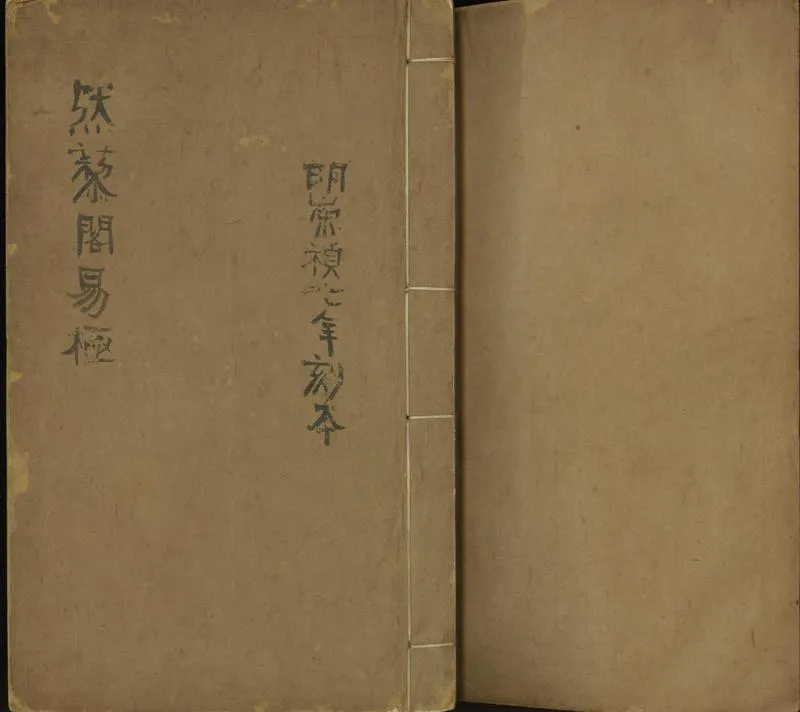 明崇禎七年刻本
然藜閣易極